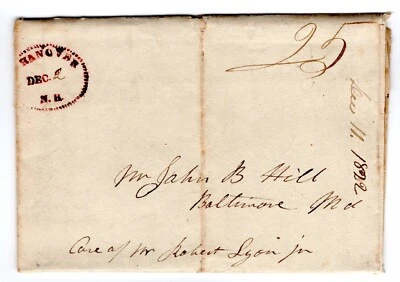 HANOVER
DEC. 2
N.H.
25
Mr John B Hill
Baltimore Md
Care of Mr Robert Lyon jr
Dec 11. 1822